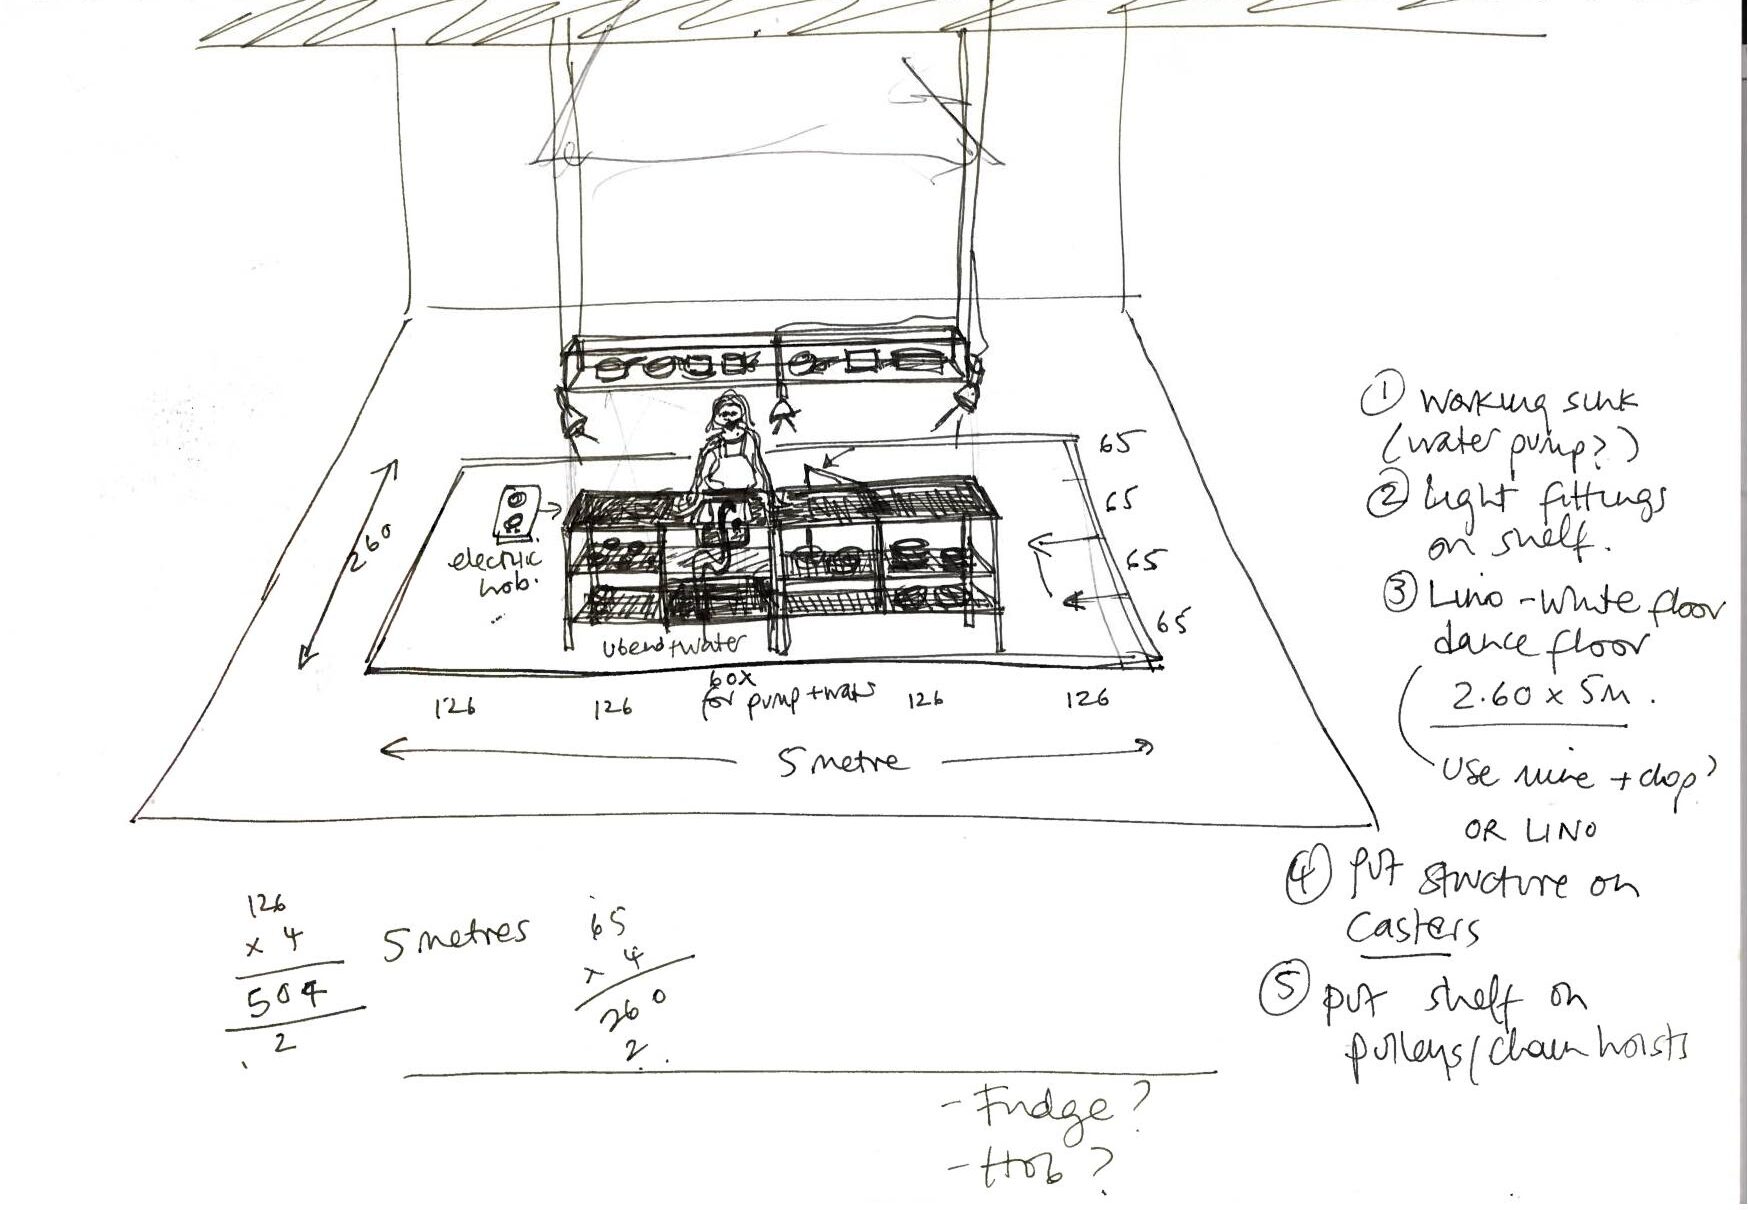 65
65
65
65
260
electric
hob.
ubend+water
60x
for pump +
126
126
126
126
5 metre
① working sink
(water pump?)
② Light fittings
on shelf.
③ Lino - white floor
dance floor
2.60 x 5m.
use + chop?
OR LINO
④ put structure on
casters
⑤ put shelf on
pulleys/chain hoists
126
x 4
504
2
5 metres
65
x 4
260
2.
- Fudge?
- Hob?